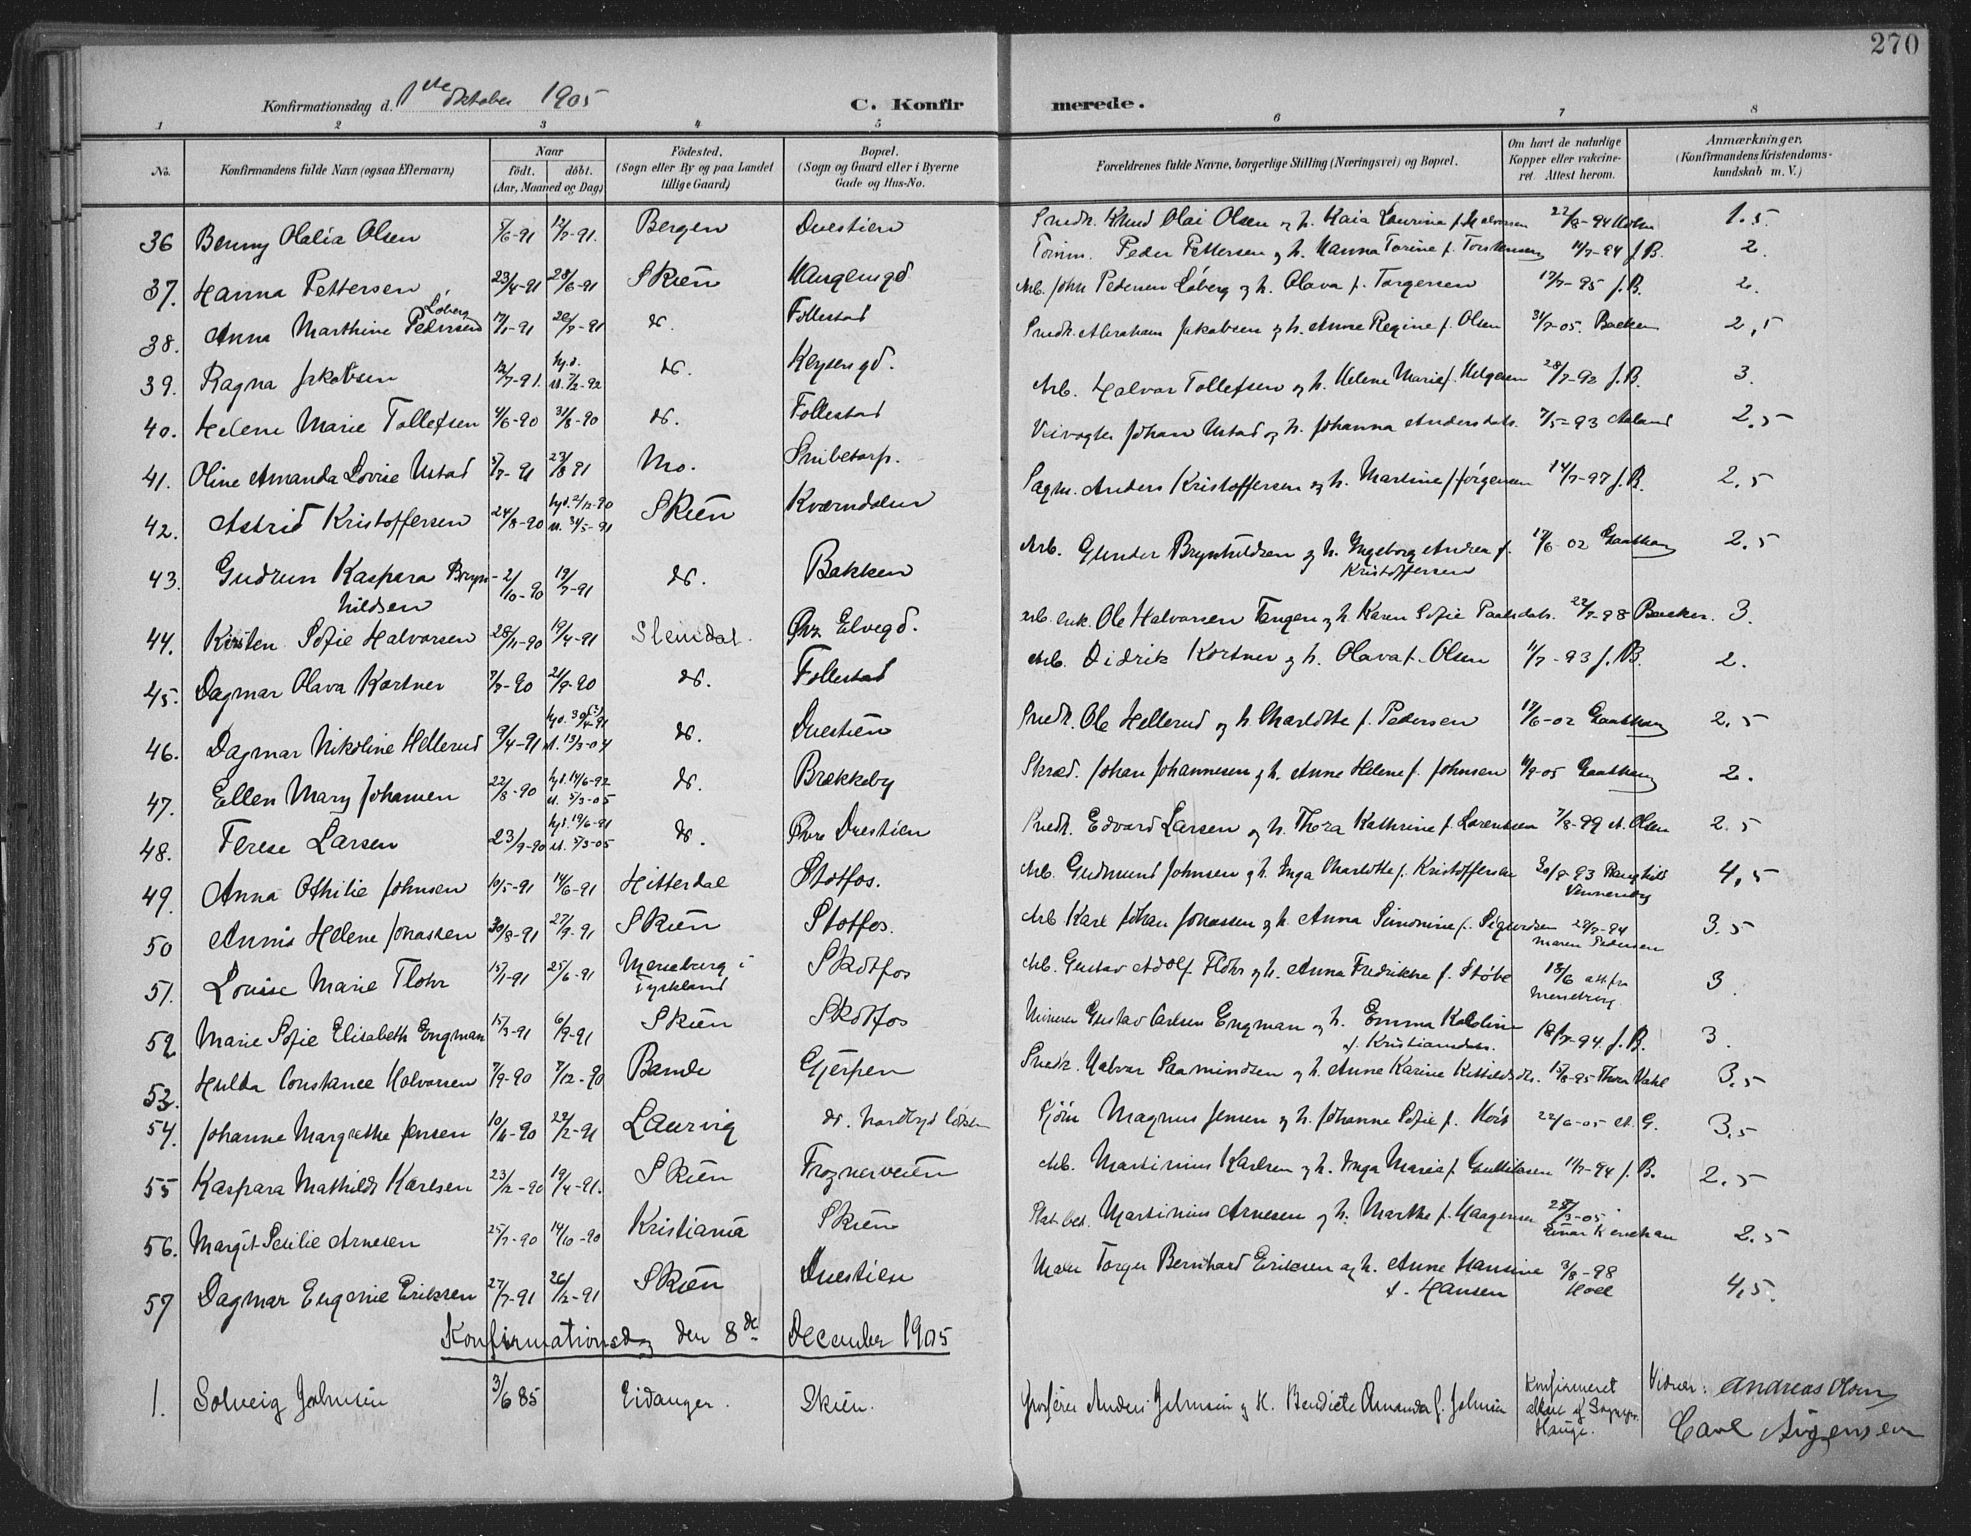 270
Konfirmationsdag d. 1ste Oktober 1905 C. Konfirmerede.
1 2 3 4 5 6 7 8
No. Konfirmandens fulde Navn (ogsaa Efternavn) Naar født. døbt. (Aar, Maaned og Dag) Fødested. (Sogn eller By og paa Landet tillige Gaard) Bopæl. (Sogn og Gaard eller i Byerne Gade og Hus-No. Forældrenes fulde Navne, borgerlige Stilling (Næringsvei) og Bopæl. Om havt de naturlige Kopper eller vakcineret. Attest herom. Anmærkninger. (Konfirmandens Kristendomskundskab m. V.)
36 Benny Olalia Olsen 5/6-91 12/7-91. Bergen Duestien Snedk. Knud Olai Olsen og h. Kaia Laurina f. Halvorsen 22/8-94 Holm 1.5
37. Hanna Pettersen 23/4-91 28/6-91 Skien Tømm. Peder Pettersen og h. Hanna Torine f. Torstensen 11/7-94 J.B. 2.
38. Anna Marthine Pedersen Løberg 17/5-91 26/7-91 do. Follestad Arb. John Pedersen Løberg og h. Olava f. Torgersen 17/7-95 J.B. 2.
39. Ragna Jakobsen 12/7-91. hjd. st. 7/2-92 do. Keysergd. Snedk. Abraham Jakobsen og h. Anne Regine f. Olsen 31/7-05. Backer 2,5
40. Helene Marie Tollefsen 4/6-90 31/8-90 do. Follestad Arb. Halvor Tollefsen og h. Helene Marie f. Helgesen 28/7-92 J.B. 3.
41. Oline Amanda Lovise Ustad 5/7-91 23/8 91 Mo. Snibetorp. Veivogter Johan Ustad og h. Johanna Andersdatr. 7/5-93 Aaland 2.5
42. Astrid Kristoffersen 24/8-90 hjd. 2/12-90 st. 31/5-91 Skien Kværndalen Sagm. Anders Kristoffersen og h. Martine f. Jørgensen 14/7-97 J.B. 2.5
43. Gudrun Kaspara Brynhildsen 2/10-90 19/7-91 do. Bakken Arb. Gunder Brynhildsen og h. Ingeborg Andrea f. Kristoffersen 17/6-02 Gaathaug 2.5
44. Kirsten Sofie Halvorsen 28/11-90 19/4-91 Slemdal. Øvr Elvegd. Arb. enk. Ole Halvorsen Tangen og h. Karen Sofie Paalsdatr. 22/7-98 Backer. 3.
45. Dagmar Olava Kortner 7/7-90 21/9-90 do. Follestad Arb. Didrik Kortner og h. Olava f. Olsen 11/7-93 J.B. 2.
46. Dagmar Nikoline Hellerud 9/4-91 hjd. 30/4-91 st. 13/3-04 do. Duestien Snedk. Ole Hellerud og h. Charlotte f. Pedersen 17/6-02 Gaathaug 2.5
47. Ellen Mary Johansen 22/8-90 hjd. 14/6-92 st. 5/3-05 do. Brækkeby Skræd. Johan Johannesen og h. Anne Helene f. Johnsen 11/9-05 Gaathaug 2.
48. Terese Larsen 23/9-90 hjd. 19/6-91 st. 5/3-05 do. Øvre Duestien Snedk. Edvard Larsen og h. Thora Kathrine f. Lorentsen 7/8-99 A. Olsen 2.5
49. Anna Othilie Johnsen 10/5-91 14/6-91 Hitterdal Skotfos. Arb. Gudmund Johnsen og h. Inga Charlotte f. Kristoffersen 30/8-93 4,5
50 Annis Helene Jonassen 30/8-91 27/9-91 Skien Skotfos. Arb Karl Johan Jonassen og h. Anna Simonine f. Sigurdsen 28/7-94 Maren Pedersen 3.5
51. Louise Marie Flohr 15/1-91 25/6-91 Merseburg i Tyskland Skotfos Arb. Gustav Adolf Flohr og h. Anna Fredrikke f. Støbe 18/6 att. fra Merseburg. 3.
52 Marie Sofie Elisabeth Engman 15/3-91 6/9-91 Skien Skotfos Minerer Gustav Carlsen Engman og h. Emma Karoline f. Kristiansdatr. 18/7-94. J.B. 3.
53. Hulda Constance Halvorsen 7/9-90 7/12-90 Bamle Gjerpen Snedk. Halvor Saamindsen og h. Anne Karine Kittilsdtr. 15/8-95 Thora Vahl 3,5
54. Johanne Margrethe Jensen 10/11-90 22/2-91 Laurvig do. Gjørt. Magnus Jensen og h. Johanne Sofie f. Holt 22/6-05 A. G. 3.5
55 Kaspara Mathilde Karlsen 23/12-90 19/4-91. Skien Frognerveien Arb. Martinius Karlsen og h. Inga Marie f. Gulliksen 11/7-94 J.B. 2.5
56. Margit Pesilie Arnesen 25/7-90 14/10-90 Kristiania Skien Stat.bet. Martinius Arnesen og h. Marthe f. Haagensen 28/3-05 2.5
57 Dagmar Eugenie Eriksen 27/7-91 26/12-91 Skien Duestien Maler Torger Bernhard Eriksen og h. Anne Hansine f. Hansen 3/8-98 Hoel 4,5.
Konfirmationsdag den 8de December 1905
1. Solveig Johnsen 3/6 85 Eidanger. Skien. Grosserer Anders Johnsen og H. Bendicte Amanda f. Johnsen Konfirmeret alene af Sognepr. Hauge. Vidner: Andreas Olsen
Carl Jørgensen